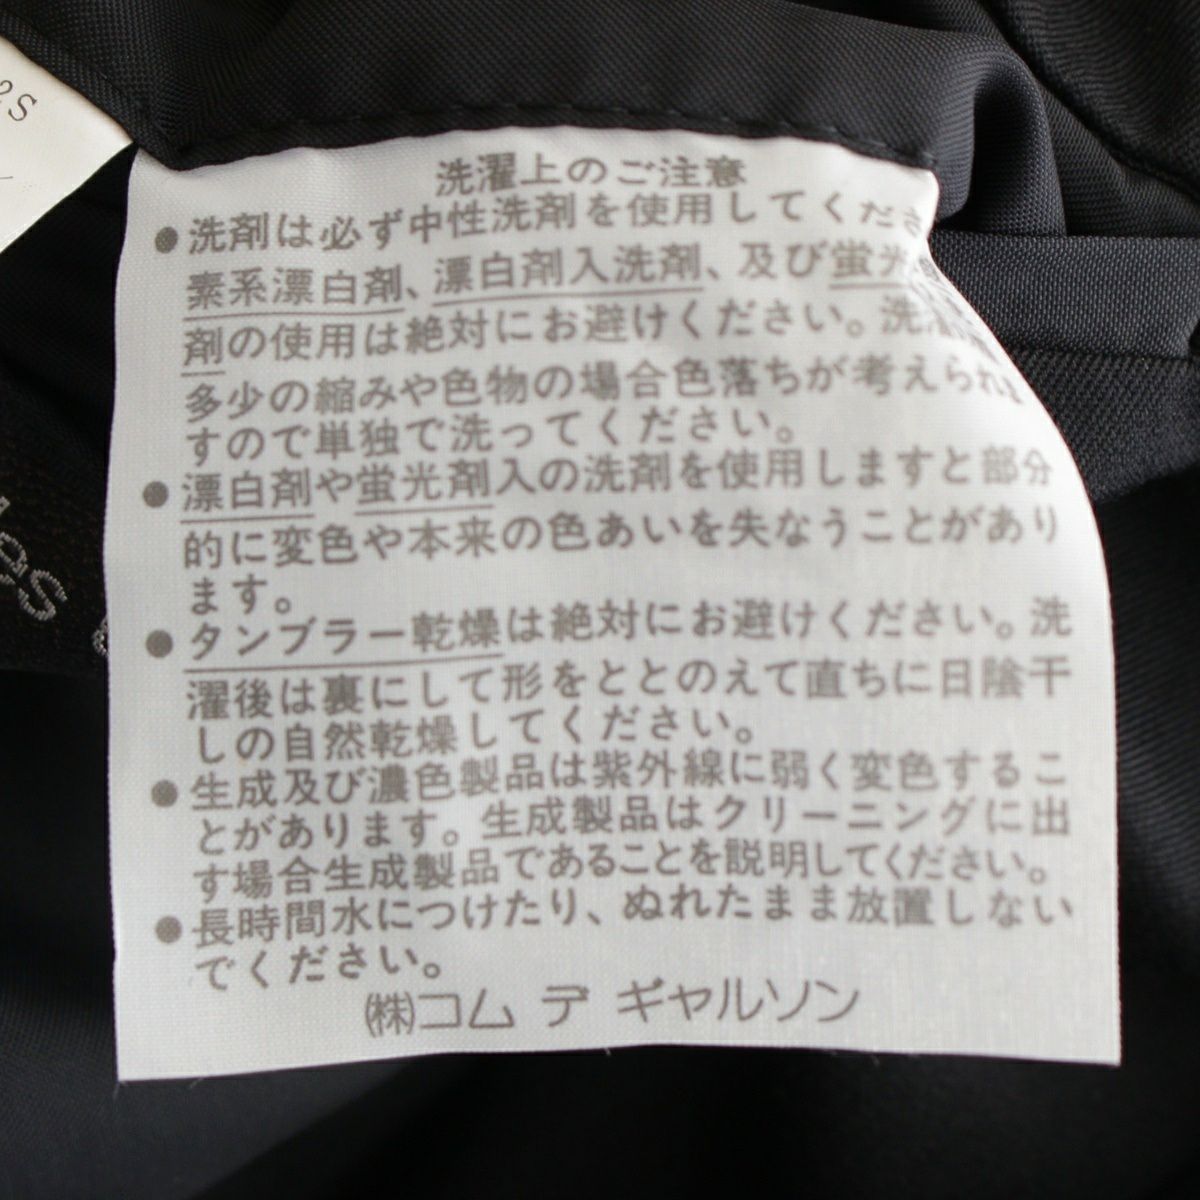 2S
les
洗濯上のご注意
●洗剤は必ず中性洗剤を使用してくださ
素系漂白剤、漂白剤入洗剤、及び蛍光
剤の使用は絶対にお避けください。洗濯
多少の縮みや色物の場合色落ちが考えられま
すので単独で洗ってください。
●漂白剤や蛍光剤入の洗剤を使用しますと部分
的に変色や本来の色あいを失なうことがあり
ます。
●タンブラー乾燥は絶対にお避けください。洗
濯後は裏にして形をととのえて直ちに日陰干
しの自然乾燥してください。
●生成及び濃色製品は紫外線に弱く変色するこ
とがあります。生成製品はクリーニングに出
す場合生成製品であることを説明してください。
●長時間水につけたり、ぬれたまま放置しない
でください。
㈱コム デ ギャルソン